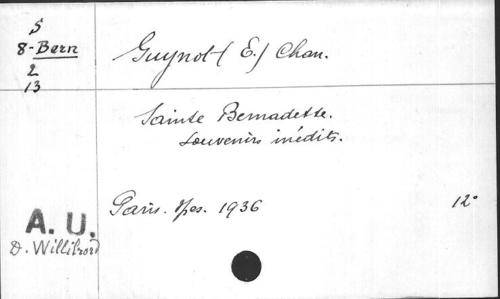 S
8-Bern
2
13
Guynot (E.) Chan.
Sainte Bernadette.
Souvenirs inédits.
Paris. Spes. 1936 12°
A. U.
D. Willibrord